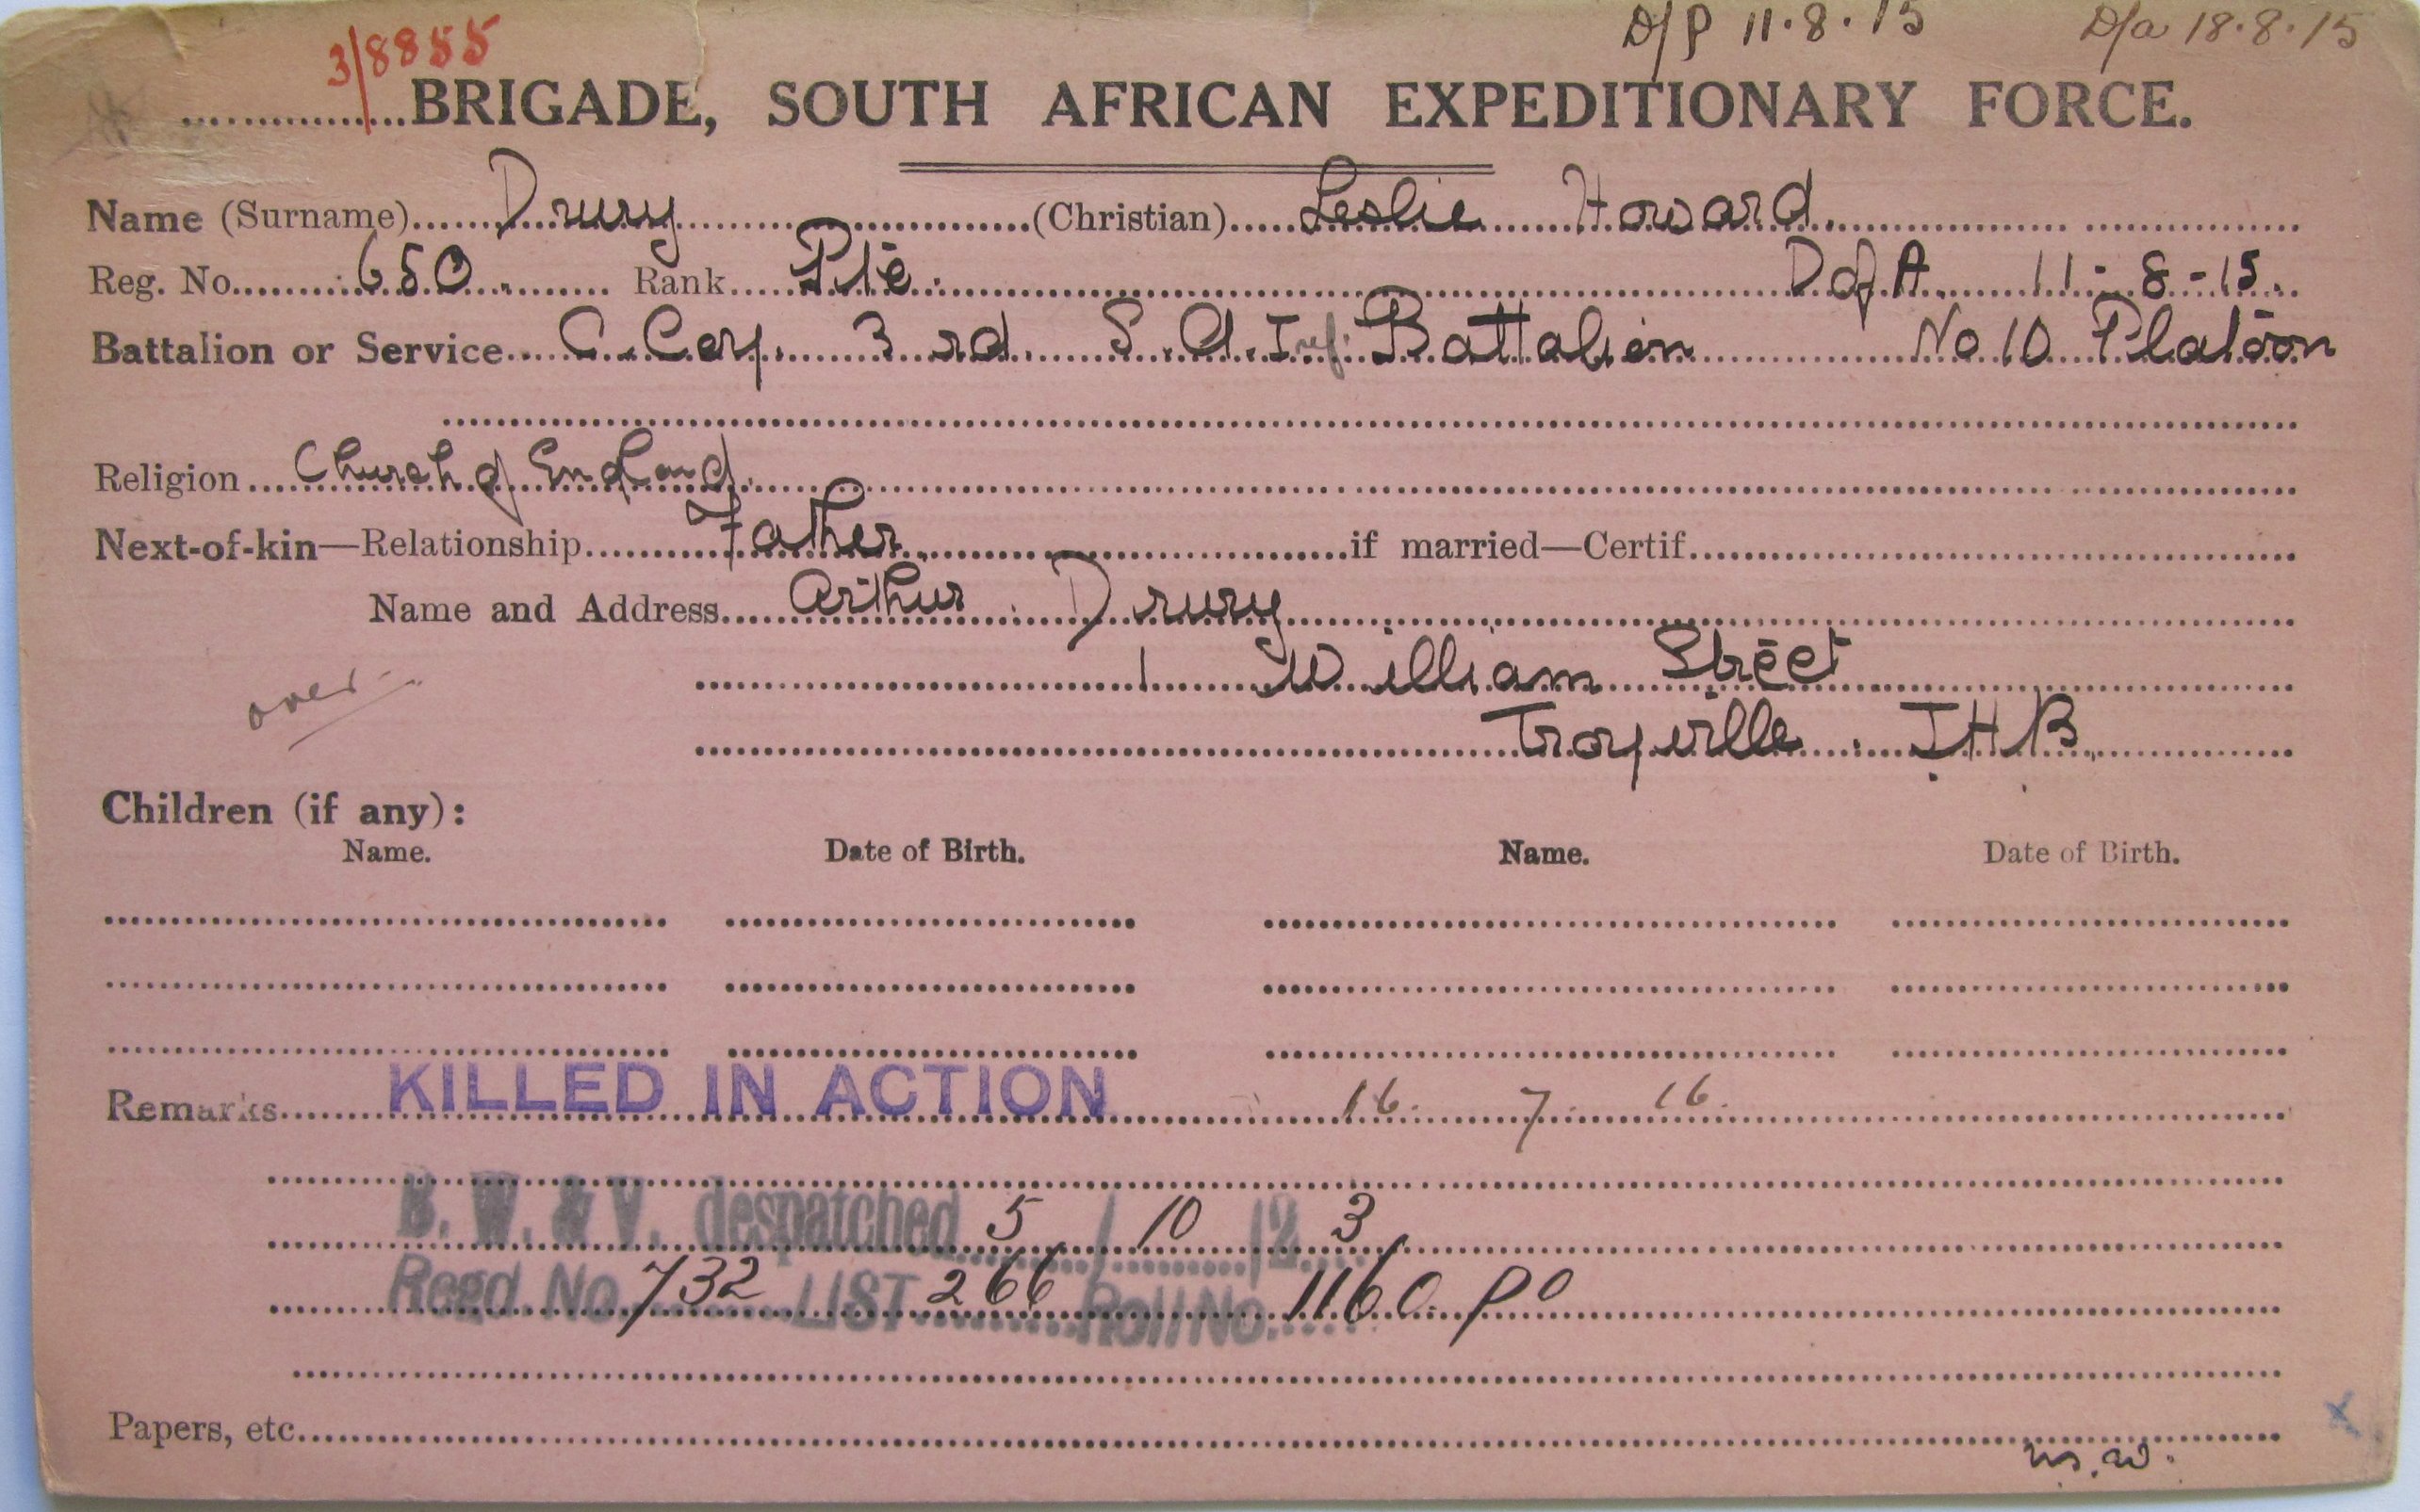 3/8855 D/P 11.8.15 D/a 18.8.15
BRIGADE, SOUTH AFRICAN EXPEDITIONARY FORCE.
Name (Surname) Drury (Christian) Leslie Howard.
Reg. No. 650. Rank Pte. D of A. 11-8-15.
Battalion or Service C. Coy. 3rd. S.A. Inf. Battalion No 10 Platoon
Religion Church of England.
Next-of-kin—Relationship Father. if married—Certif.
Name and Address Arthur Drury
1 William Street
over
Troyeville. JHB.
Children (if any):
Name. Date of Birth. Name. Date of Birth.
Remarks KILLED IN ACTION 16. 7. 16.
B. W. & V. despatched 5 / 10 /2 3
Regd. No. 732 LIST 266 Roll No. 1160. Po
Papers, etc.